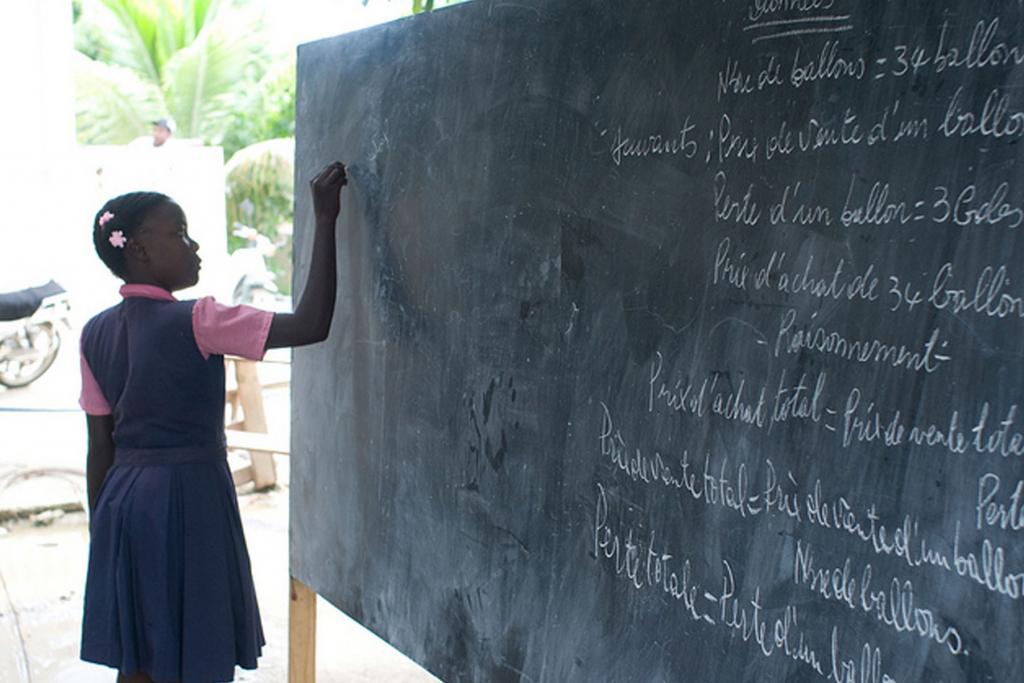 Données
Nbre de ballons = 34 ballon
suivants : Prix de vente d'un ballo
Perte d'un ballon = 3 Gdes
Prix d'achat de 34 ballon
- Raisonnement -
Prix d'achat total = Prix de vente tota
Perte
Prix de vente total = Prix de vente d'un ballon
Nbre de ballons.
Perte totale = Perte d'un ballo